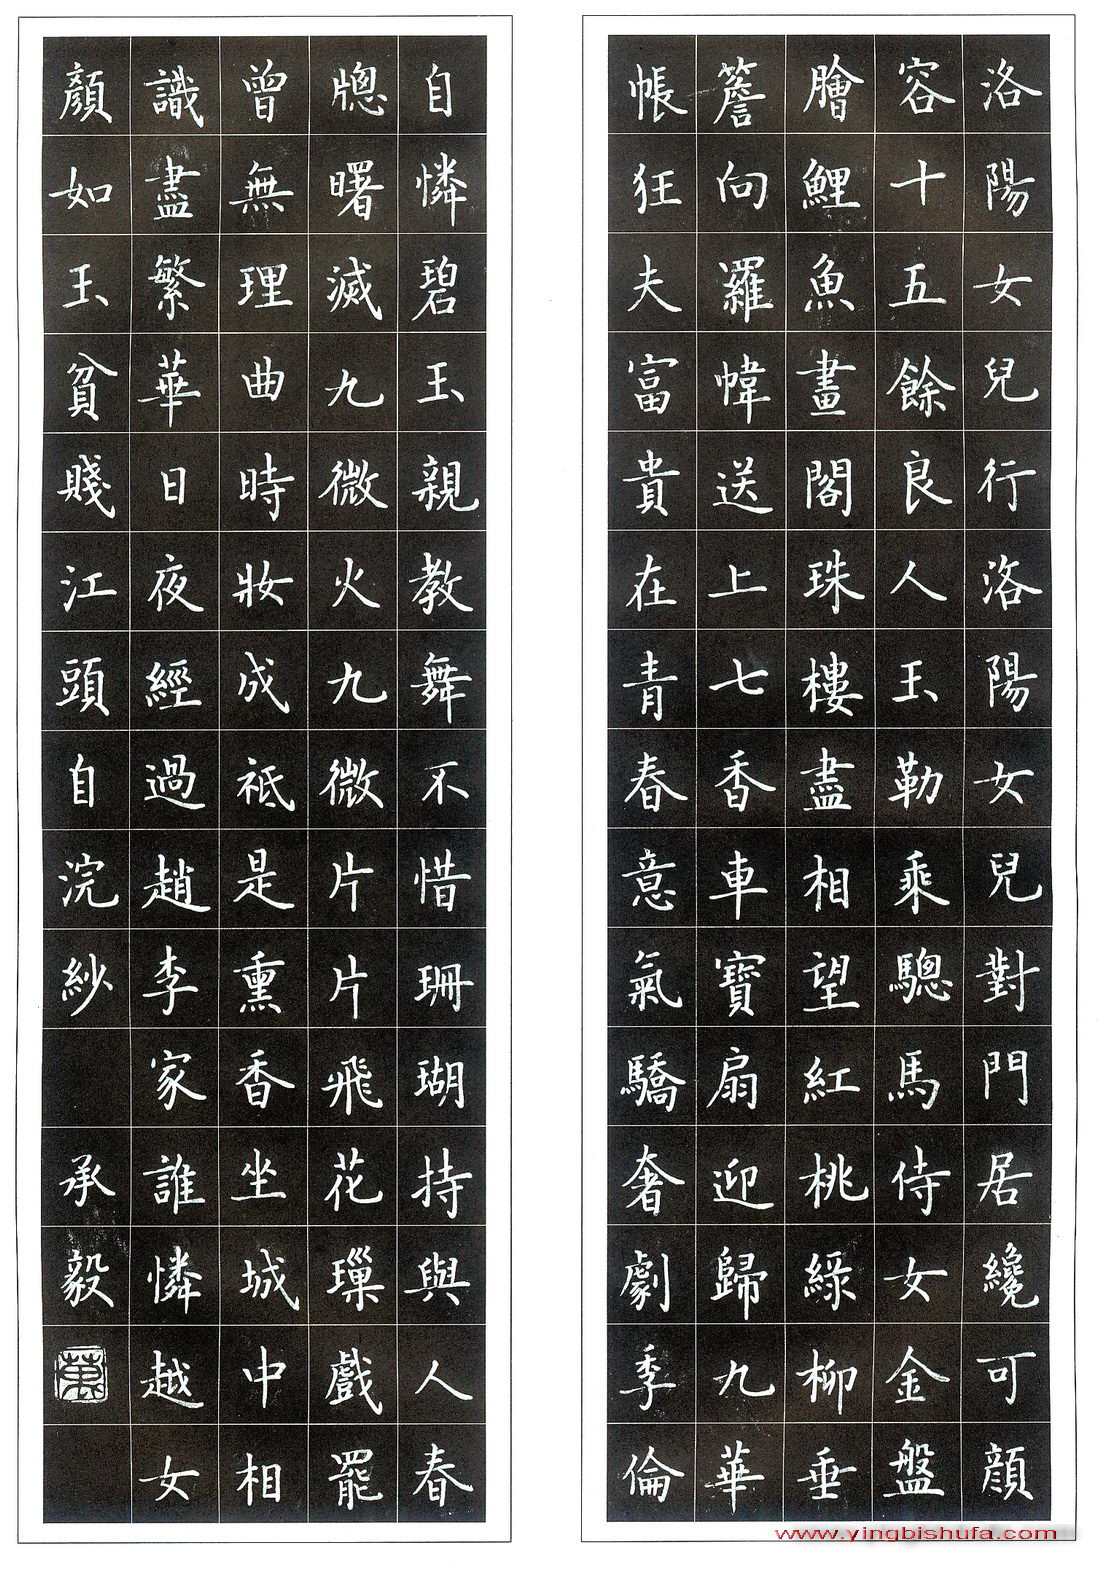 洛陽女兒行洛陽女兒對門居纔可顔
容十五餘良人玉勒乘驄馬侍女金盤
膾鯉魚畫閣珠樓盡相望紅桃綠柳垂
簷向羅幃送上七香車寶扇迎歸九華
帳狂夫富貴在青春意氣驕奢劇季倫
自憐碧玉親教舞不惜珊瑚持與人春
牕曙滅九微火九微片片飛花璅戲罷
曾無理曲時妝成祗是熏香坐城中相
識盡繁華日夜經過趙李家誰憐越女
顏如玉貧賤江頭自浣紗 承毅
萬
www.yingbishufa.com